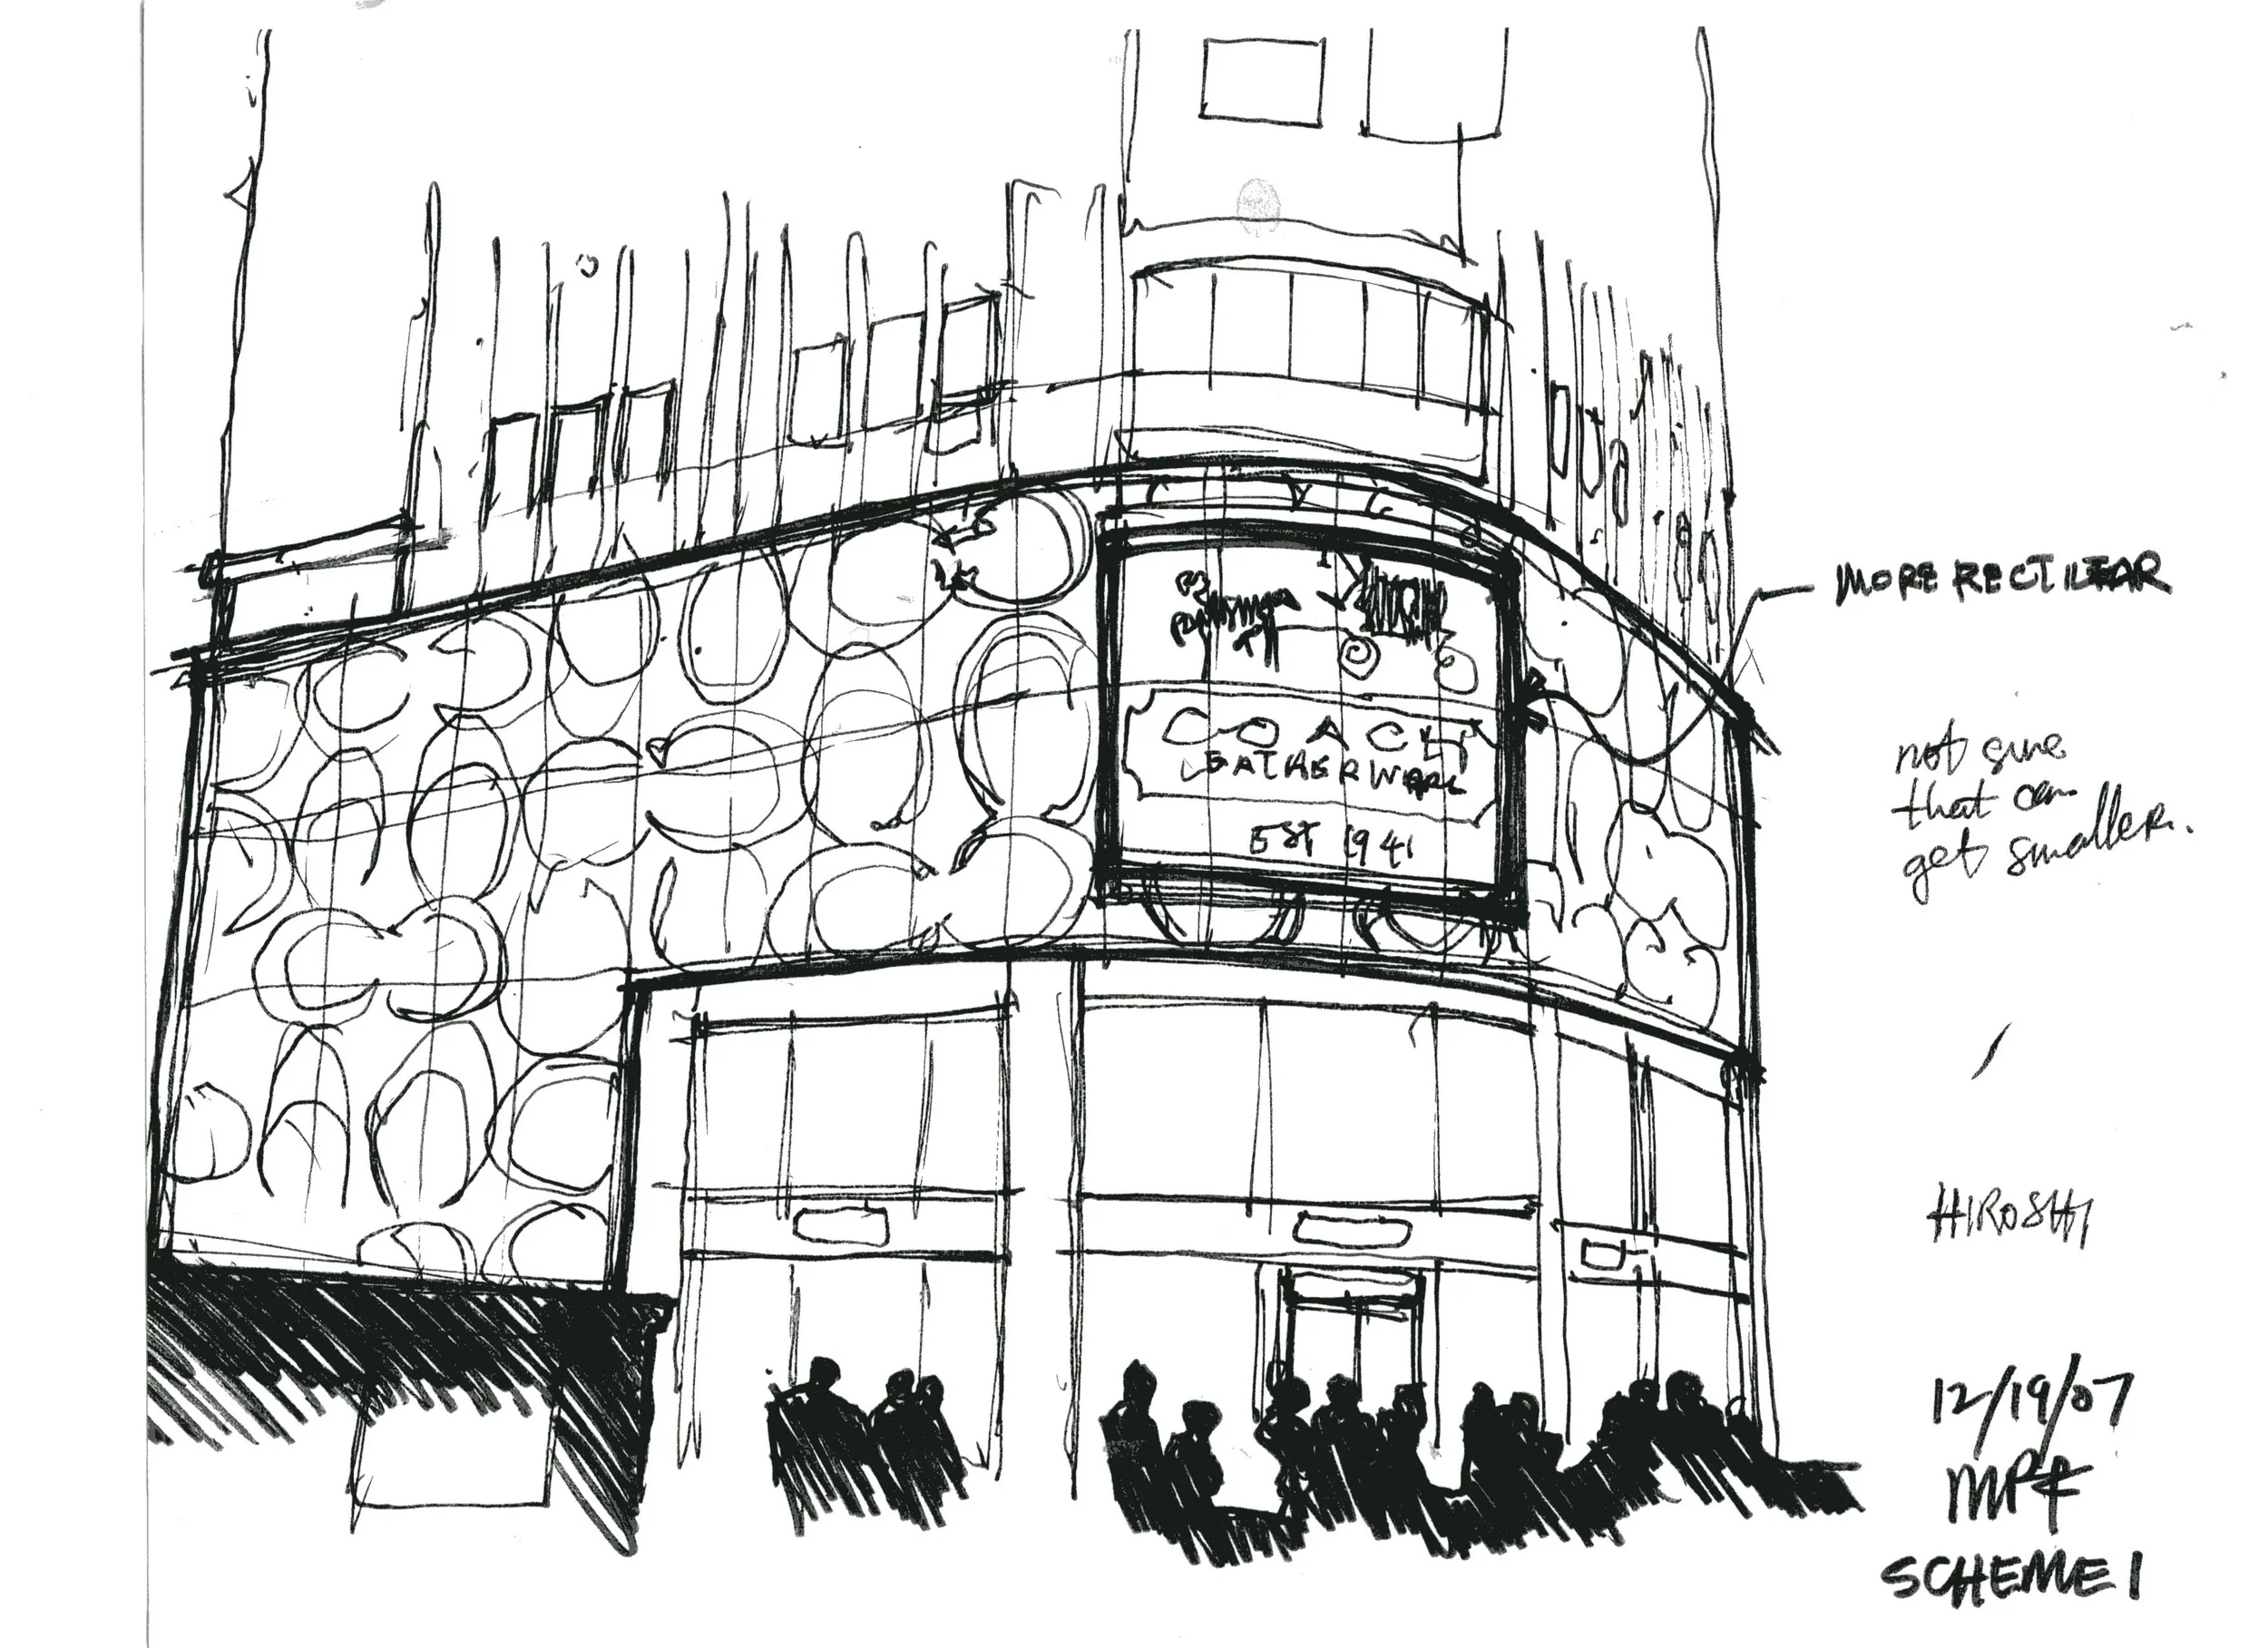 COACH
LEATHERWARE
EST 1941
MORE RECTILEAR
not sure
that can
get smaller.
HIROSHI
12/19/07
SCHEME 1